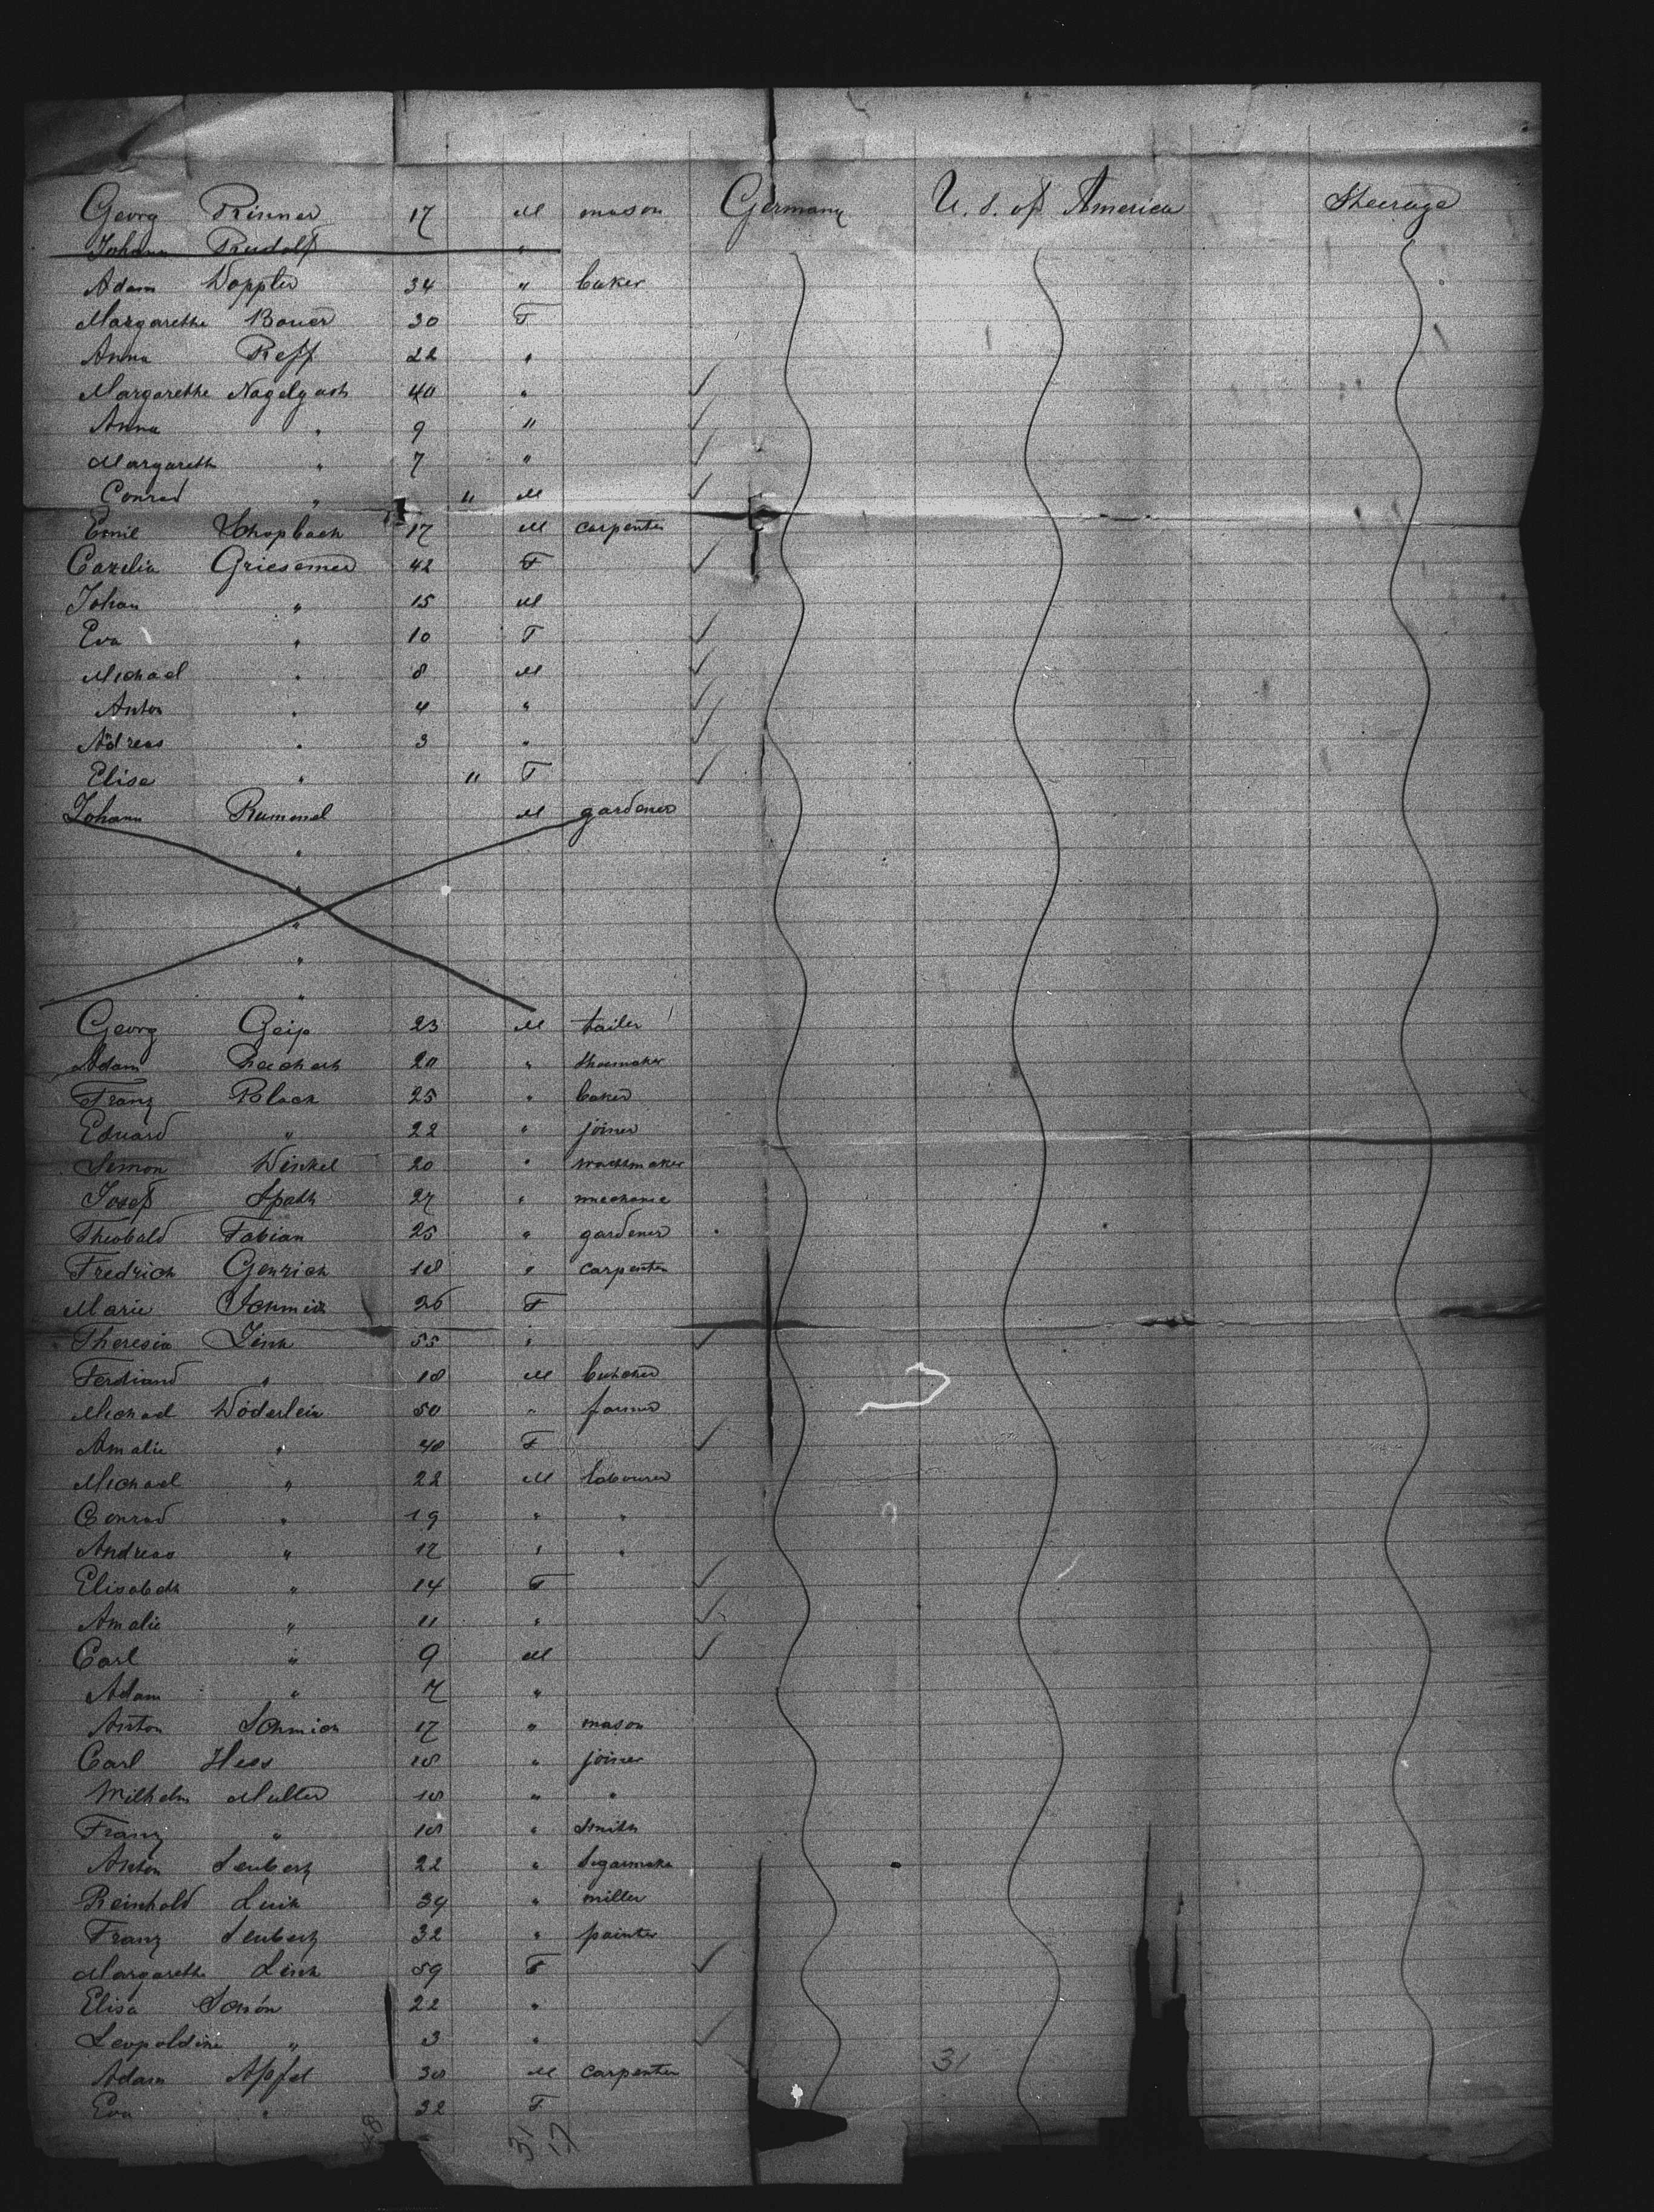 Georg Rinner 17 M mason Germany U. S. of America Steerage
Johann Rudolf "
Adam Woppler 34 " baker
Margarethe Bauer 30 F
Anna Reff 22 "
Margarethe Nagelgast 40 "
Anna " 9 "
Margareth " 7 "
Conrad " " M
Emil Schopbach 17 M carpenter
Griesemer 42 F
Johan " 15 M
Eva " 10 F
Michael " 8 M
Anton " 4 "
Andreas " 3 "
Elise " " F
Johann Rummel M gardener
"
"
"
"
"
Georg Geip 23 M tailer
Adam 20 " shoemaker
Franz Black 25 " baker
Eduard " 22 " joiner
Simon Winkel 20 " watchmaker
Josef Spath 27 " mechanic
Theobald Fabian 25 " gardener
Fredrich Genrich 18 " carpenter
Marie Schmidt 26 F
Theresia Link 55 "
Ferdiand " 18 M butcher
Michael Wöderlein 50 " farmer
Amalie " 40 F
Michael " 22 M labourer
Conrad " 19 " "
Andreas " 17 " "
Elisabeth " 14 F
Amalie " 11 "
Carl " 9 M
Adam " 7 "
Anton Schmich 17 " mason
Carl Hess 18 " joiner
Wilhelm Muller 18 " "
Franz " 18 " smith
Anton Seubert 22 " Segarmaker
Reinhold Luik 39 " miller
Franz Seubert 32 " painter
Margareth Link 59 F
Elisa Schön 22 "
Leopoldine " 3 "
Adam Apfel 30 M carpenter
31
Eva " 32 F
48 31
17